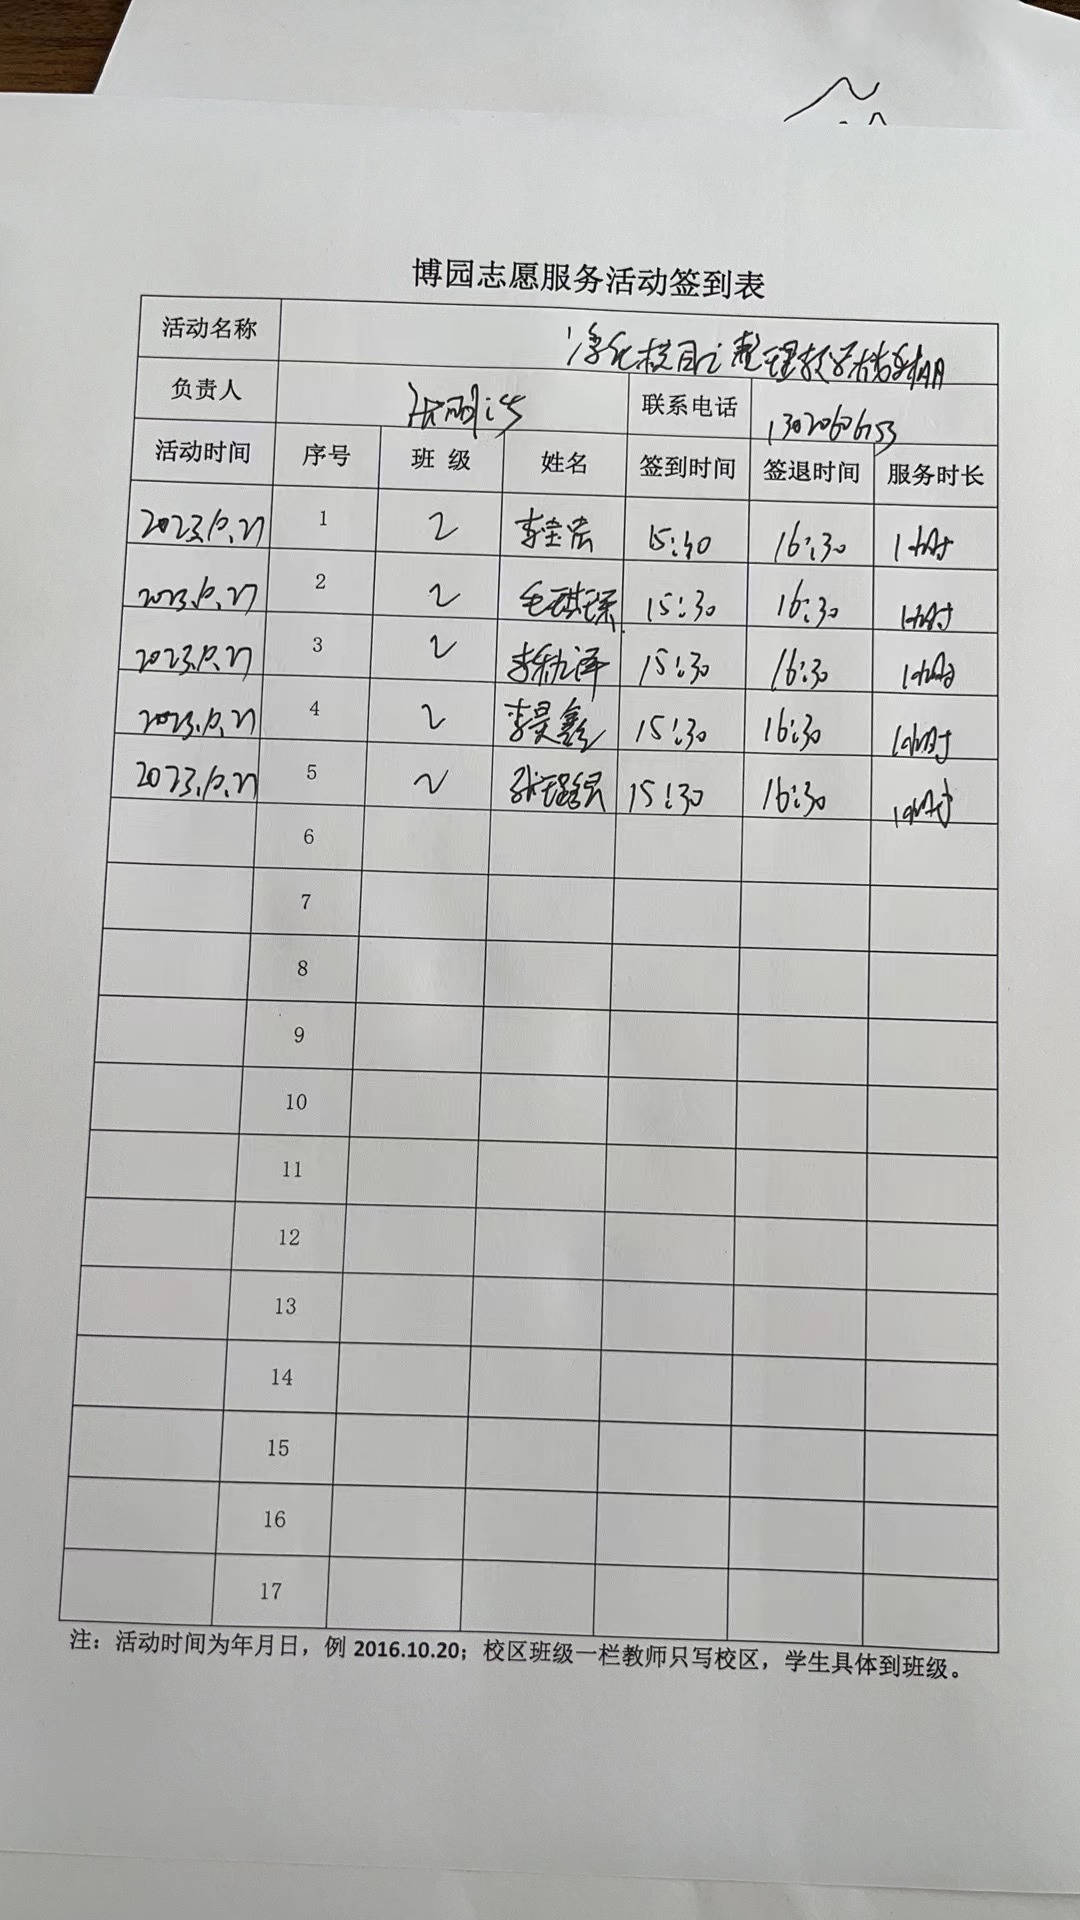 博园志愿服务活动签到表
活动名称 净化校园，整理教学
负责人 联系电话
活动时间 序号 班 级 姓名 签到时间 签退时间 服务时长
2023.10.27 1 2 李 宏 15:30 16:30 1小时
2023.10.27 2 2 毛琪琛 15:30 16:30 1小时
2023.10.27 3 2 李 泽 15:30 16:30 1小时
2023.10.27 4 2 李昊鑫 15:30 16:30 1小时
2023.10.27 5 2 15:30 16:30 1小时
6
7
8
9
10
11
12
13
14
15
16
17
注：活动时间为年月日，例 2016.10.20；校区班级一栏教师只写校区，学生具体到班级。